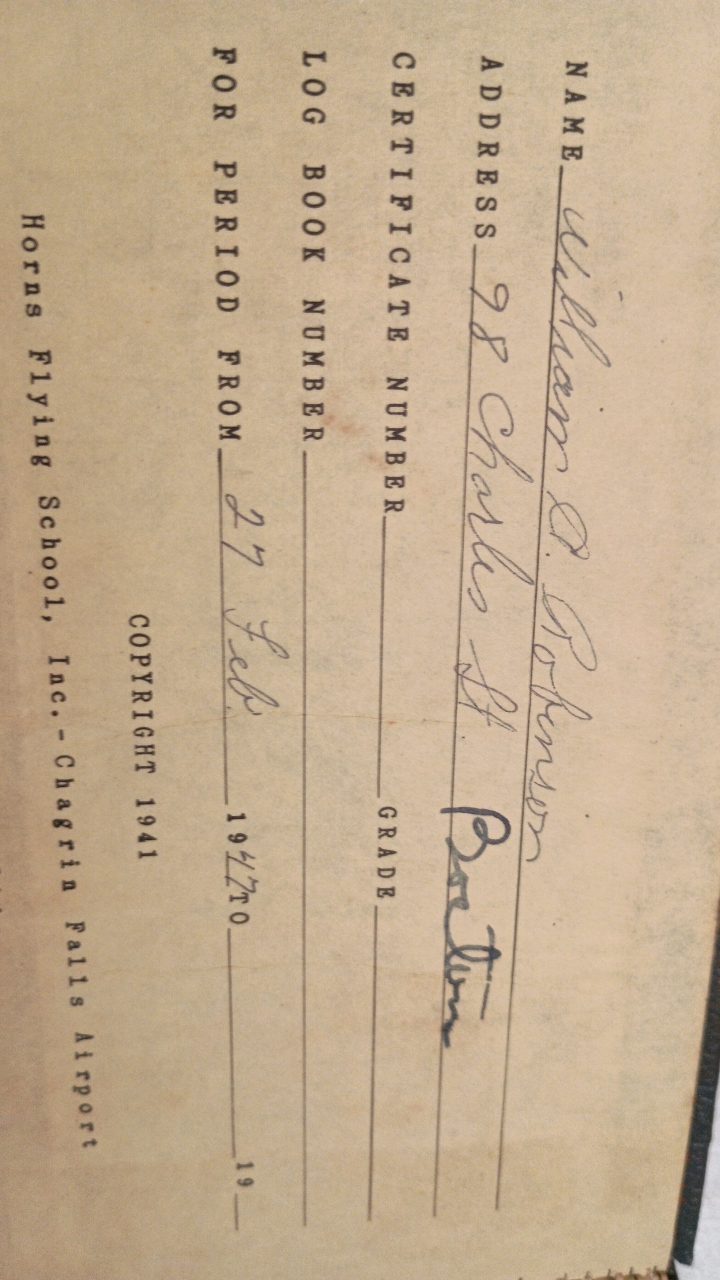 NAME William D. Robinson
ADDRESS 98 Charles St. Boston
CERTIFICATE NUMBER GRADE
LOG BOOK NUMBER
FOR PERIOD FROM 27 Feb. 1947 TO 19
COPYRIGHT 1941
Horns Flying School, Inc.-Chagrin Falls Airport